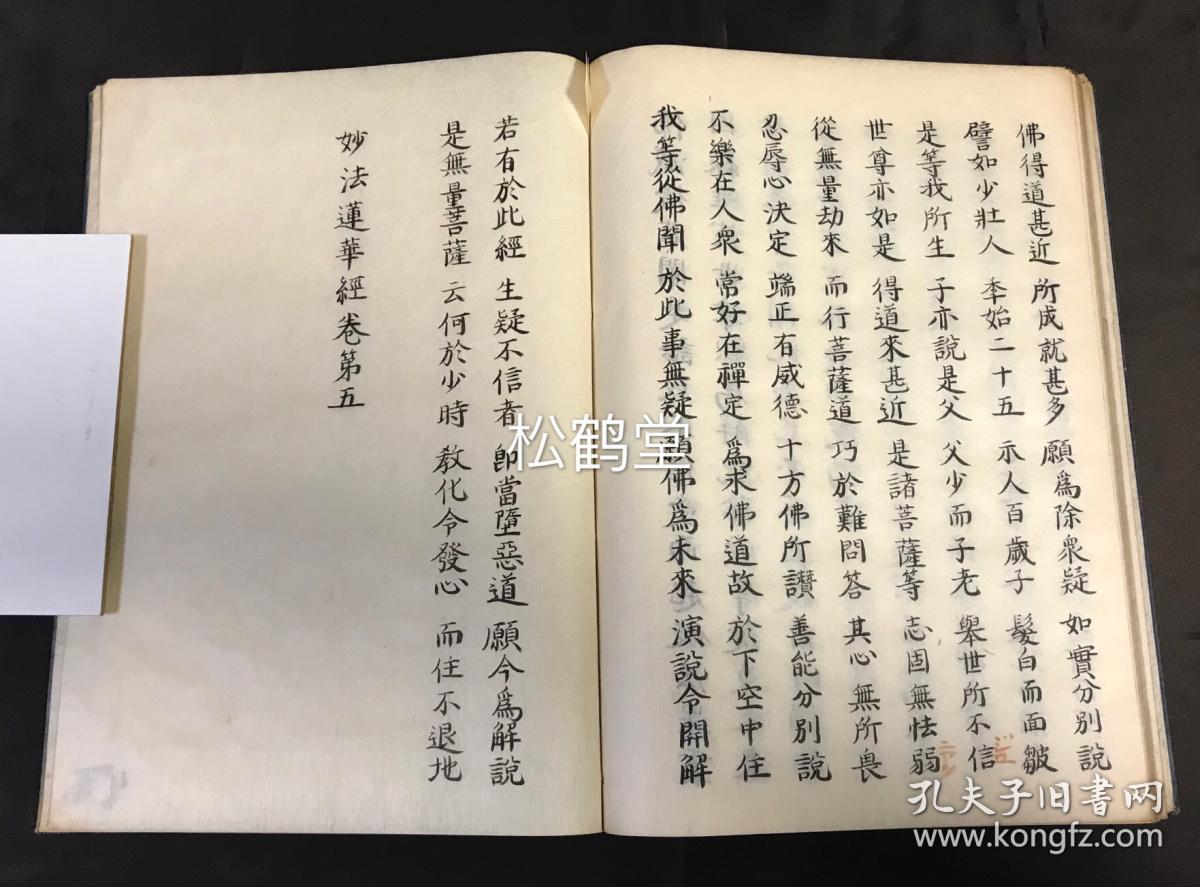 佛得道甚近 所成就甚多 願爲除衆疑 如實分別說
譬如少壯人 年始二十五 示人百歲子 髮白而面皺
是等我所生 子亦說是父 父少而子老 舉世所不信
世尊亦如是 得道來甚近 是諸菩薩等 志固無怯弱
從無量劫來 而行菩薩道 巧於難問答 其心無所畏
忍辱心決定 端正有威德 十方佛所讃 善能分別說
不樂在人衆 常好在禪定 爲求佛道故 於下空中住
我等從佛聞 於此事無疑 願佛爲未來 演說令開解
若有於此經 生疑不信者 即當墮惡道 願今爲解說
是無量菩薩 云何於少時 教化令發心 而住不退地
妙法蓮華經卷第五
松鹤堂
孔夫子旧书网
www.kongfz.com